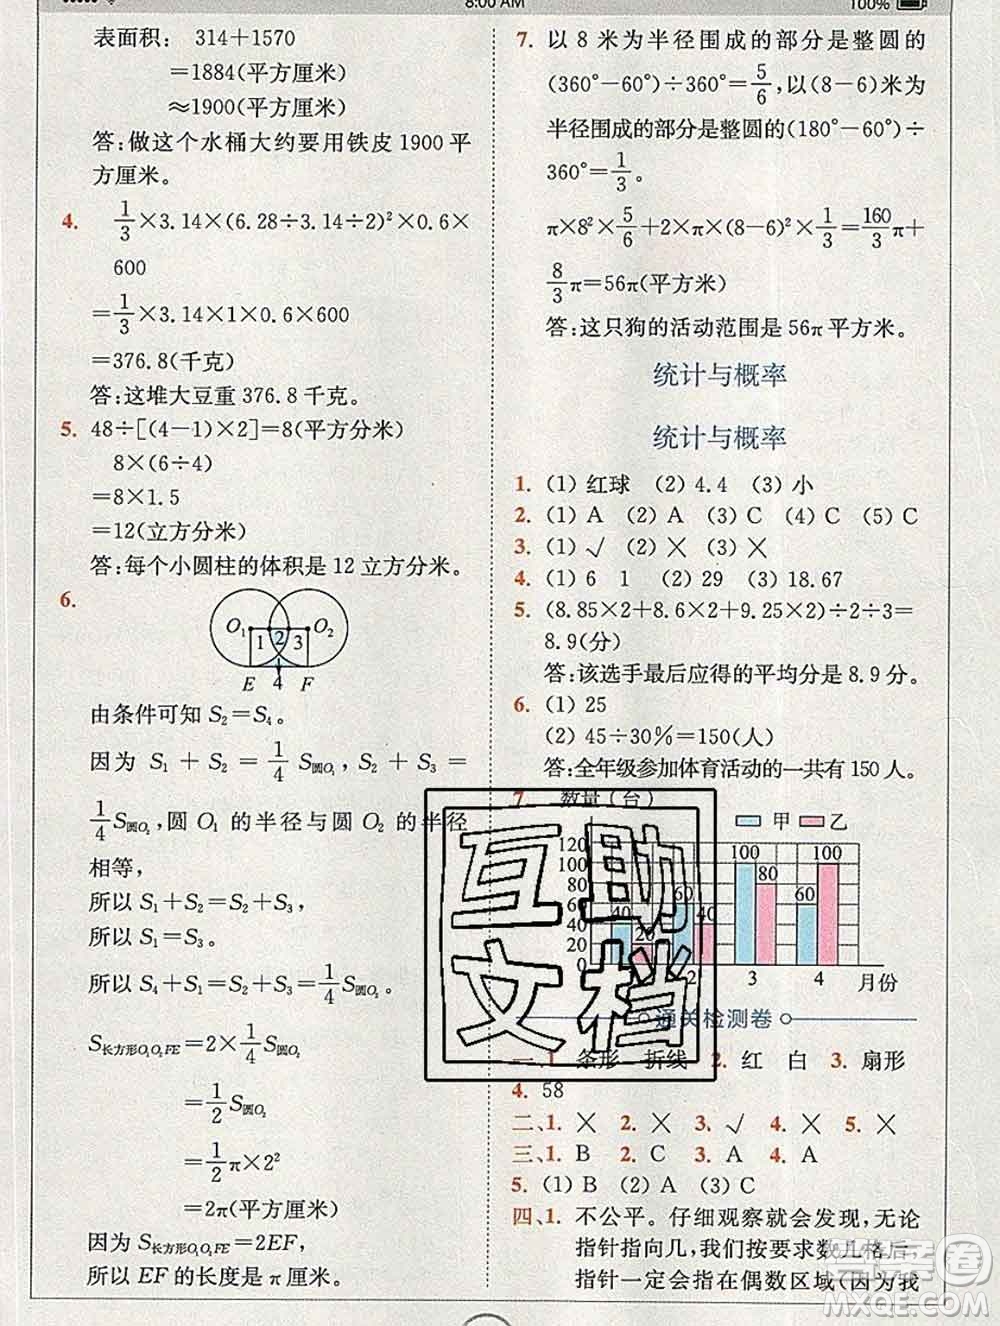 8:00 AM
100%
表面积： 314＋1570
＝1884(平方厘米)
≈1900(平方厘米)
答:做这个水桶大约要用铁皮 1900 平
方厘米。
4. 1/3×3.14×(6.28÷3.14÷2)²×0.6×
600
＝1/3×3.14×1×0.6×600
＝376.8(千克)
答:这堆大豆重 376.8 千克。
5. 48÷[(4－1)×2]＝8(平方分米)
8×(6÷4)
＝8×1.5
＝12(立方分米)
答:每个小圆柱的体积是 12 立方分米。
6.
O₁ 1 2 3 O₂
E 4 F
由条件可知 S₂＝S₄。
因为 S₁＋S₂＝1/4 S圆O₁，S₂＋S₃＝
1/4 S圆O₂，圆 O₁ 的半径与圆 O₂ 的半径
相等，
所以 S₁＋S₂＝S₂＋S₃，
所以 S₁＝S₃。
所以 S₄＋S₁＝S₂＋S₃＝1/4 S圆O₂。
S长方形O₁O₂FE＝2×1/4 S圆O₂
＝1/2 S圆O₂
＝1/2 π×2²
＝2π(平方厘米)
因为 S长方形O₁O₂FE＝2EF，
所以 EF 的长度是 π 厘米。
7. 以 8 米为半径围成的部分是整圆的
(360°－60°)÷360°＝5/6，以(8－6)米为
半径围成的部分是整圆的(180°－60°)÷
360°＝1/3。
π×8²×5/6＋2×π×(8－6)²×1/3＝160/3 π＋
8/3 π＝56π(平方米)
答:这只狗的活动范围是 56π 平方米。
统计与概率
统计与概率
1. (1) 红球 (2) 4.4 (3) 小
2. (1) A (2) A (3) C (4) C (5) C
3. (1) √ (2) × (3) ×
4. (1) 6 1 (2) 29 (3) 18.67
5. (8.85×2＋8.6×2＋9.25×2)÷2÷3＝
8.9(分)
答:该选手最后应得的平均分是 8.9 分。
6. (1) 25
(2) 45÷30%＝150(人)
答:全年级参加体育活动的一共有 150 人。
7. 数量(台)
甲 乙
120
100
80
60
40
20
0
40 20 60 40 100 80 60 100
2 3 4 月份
通关检测卷
一、1. 条形 折线 2. 红 白 3. 扇形
4. 58
二、1. × 2. × 3. √ 4. × 5. ×
三、1. B 2. C 3. A 4. A
5. (1) B (2) A (3) C
四、1. 不公平。仔细观察就会发现，无论
指针指向几，我们按要求数几格后，
指针一定会指在偶数区域(因为我
互助
文档
答案圈
MXQE.COM